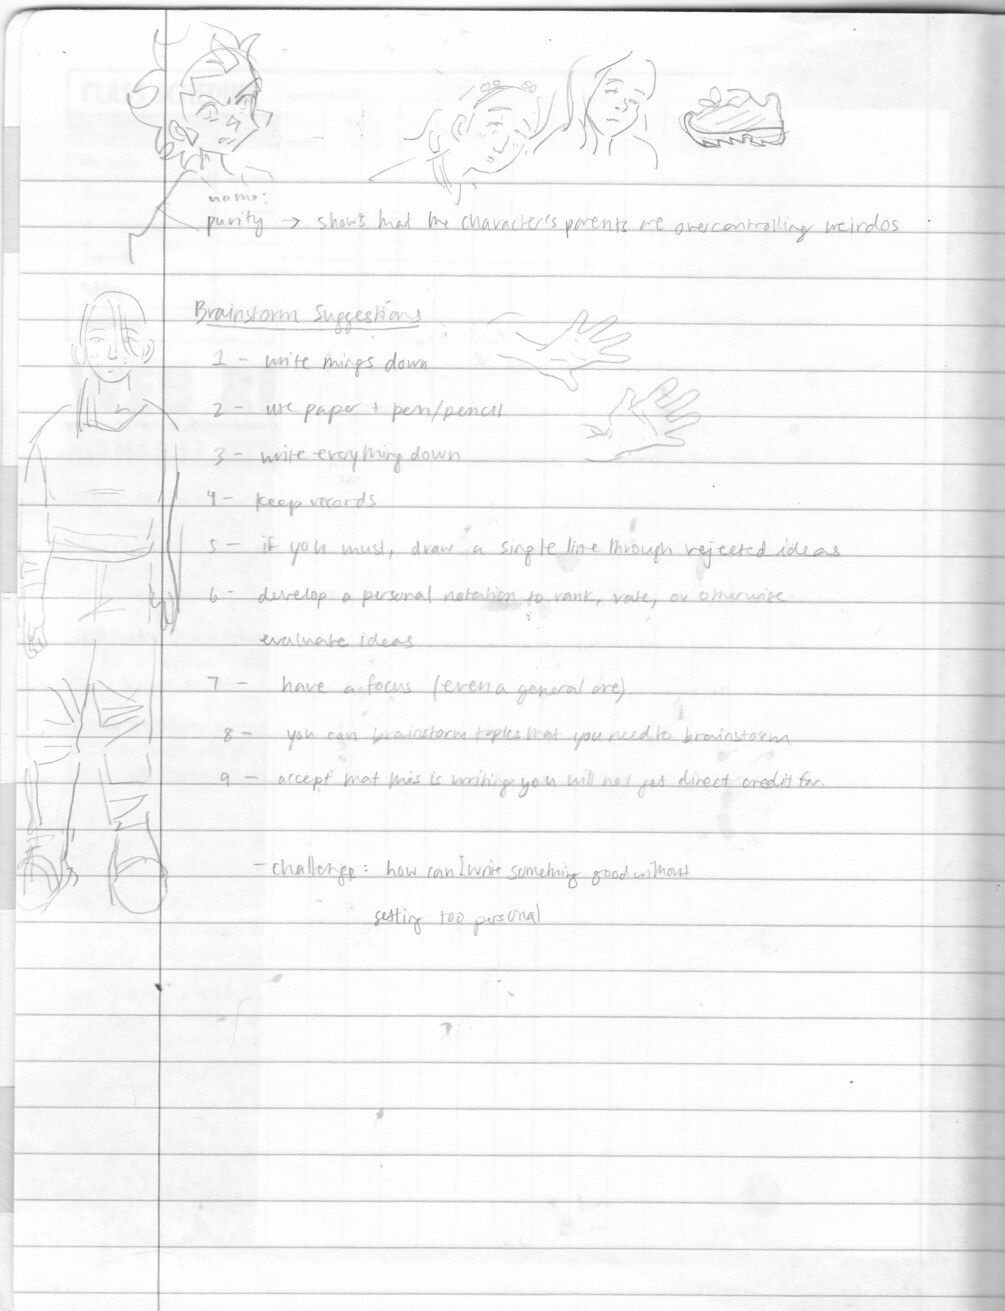 name:
purity → shows that the character's parents are overcontrolling weirdos
Brainstorm Suggestions
1 - write things down
2 - use paper + pen/pencil
3 - write everything down
4 - keep records
5 - if you must, draw a single line through rejected ideas
6 - develop a personal notation to rank, rate, or otherwise
evaluate ideas
7 - have a focus (even a general one)
8 - you can brainstorm topics that you need to brainstorm
9 - accept that this is writing you will not get direct credit for.
- challenge: how can I write something good without
getting too personal